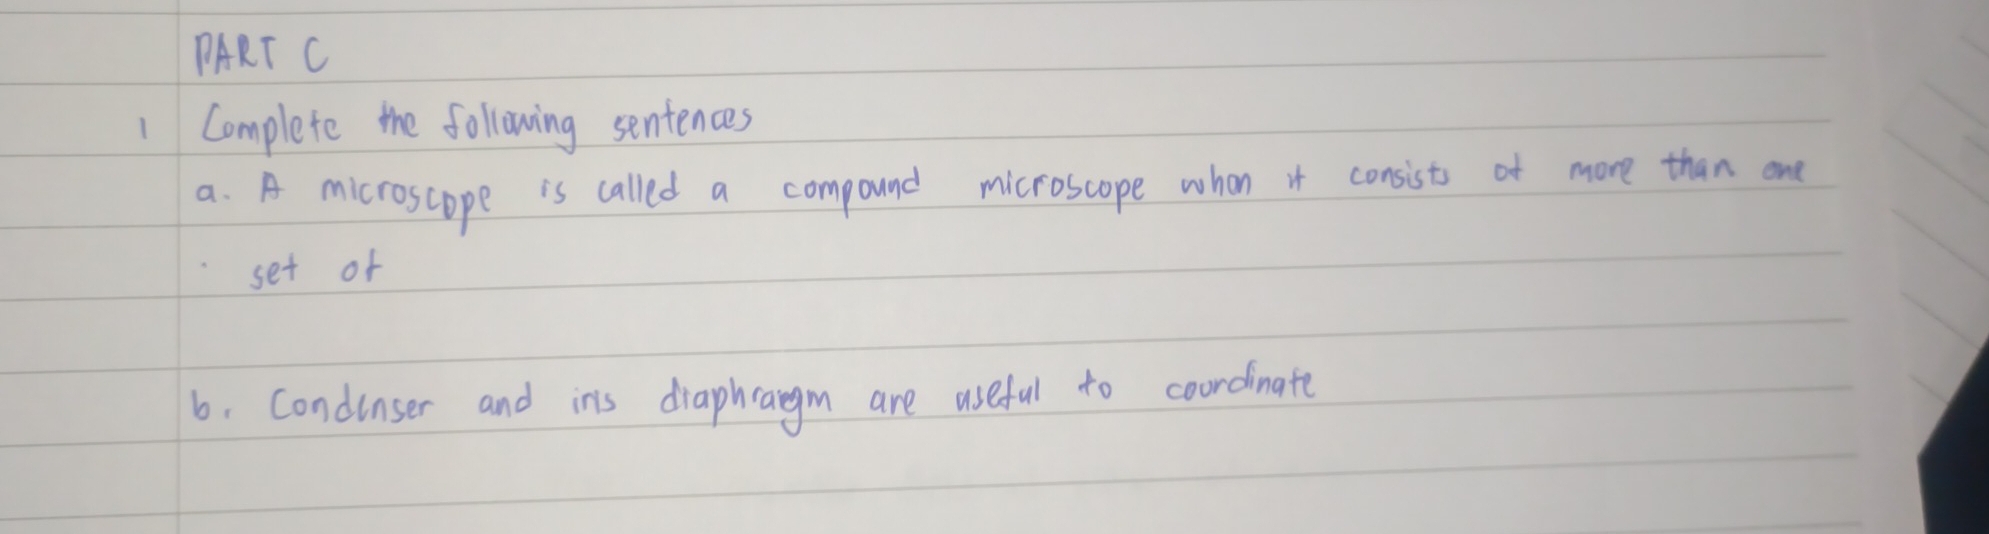 PART C
1 Complete the following sentences
a. A microscope is called a compound microscope when it consists of more than one
set of
b. Condenser and iris diaphragm are useful to coordinate